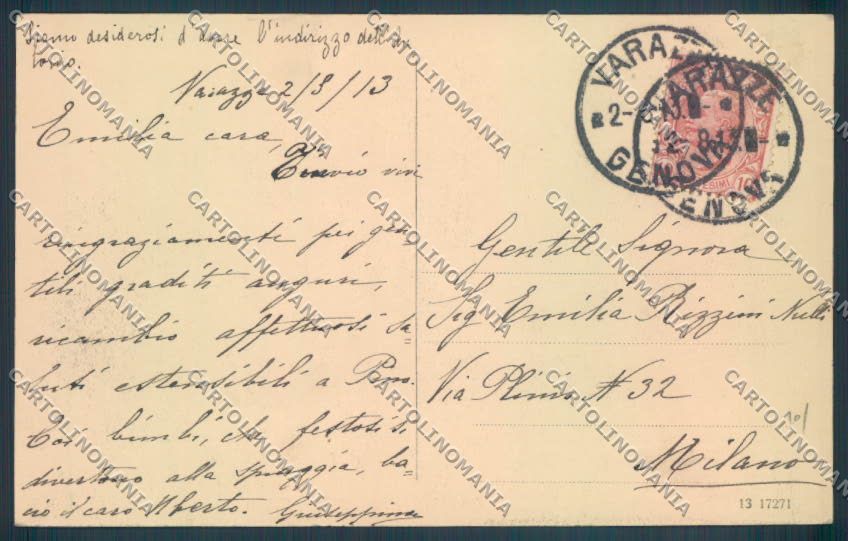 Siamo desiderosi d'avere l'indirizzo dell'An
tonio.
Varazze 2/8/13
Emilia cara,
T'invio vivi
ringraziamenti pei gen-
tili graditi auguri,
ricambio affettuosi sa-
luti estensibili a
Coi bimbi, che festosi si
divertono alla spiaggia, ba-
cio il caro Alberto. Giuseppina
VARAZZE
GENOVA
VARAZZE
GENOVA
10
Gentile Signora
Sig Emilia Rizzini Nulli
Via Plinio N 32
Milano
13 17271
CARTOLINOMANIA